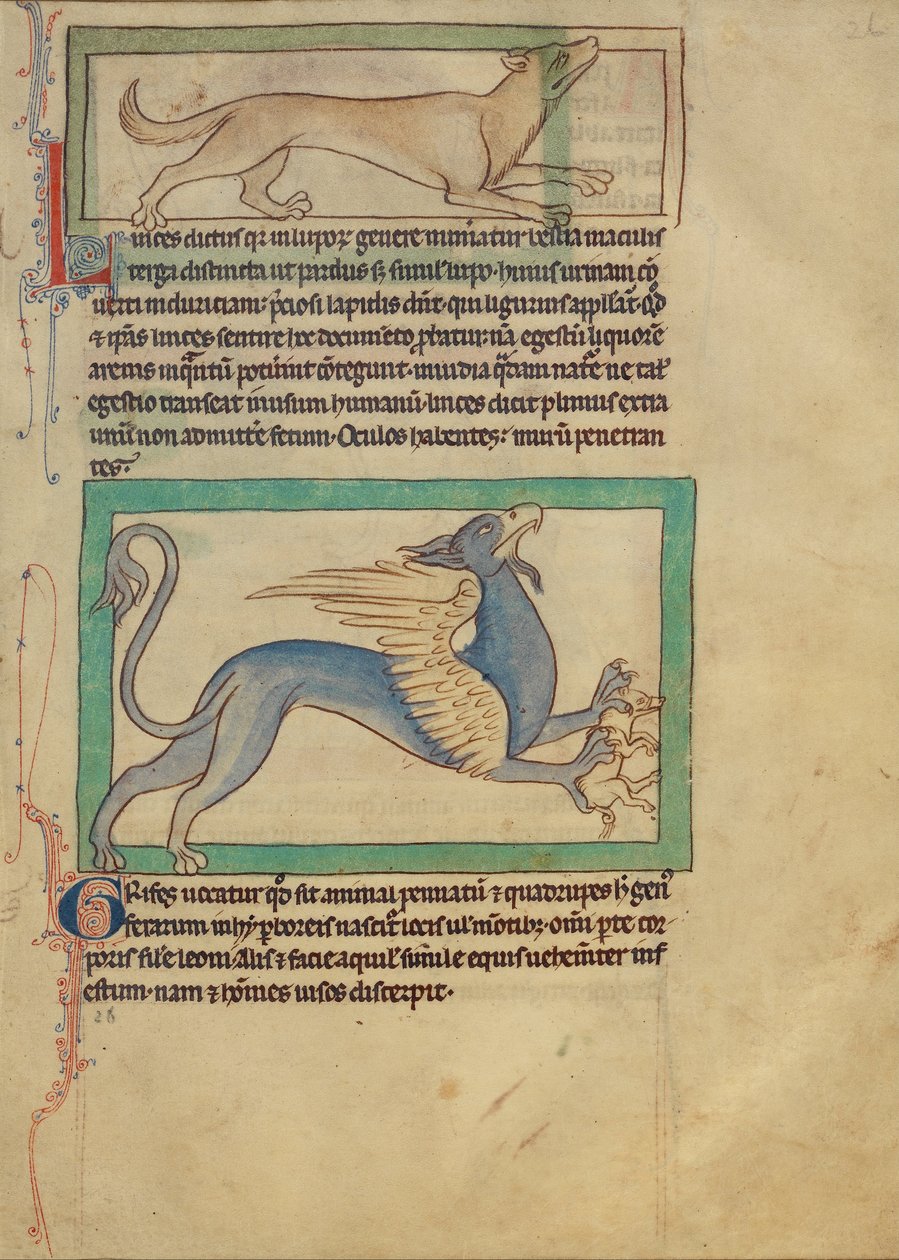 26
Linces dictus qr in lupoꝝ genere mimatur bestia maculis
terga distincta ut pardus sꝫ simil' lupo. huius urinam cō
uerti in duriciam: p̄ciosi lapidis dn̄t. qui ligurius appll'at̄. Qd̄
⁊ ip̄as linces sentire hoc documēto ꝓbatur. nā egestū liquorē
arenis inqͣntū potuint cōtegunt. inuidia qͣdam nat'e ne tal'
egestio transeat in usum humanū. linces dicit plinius extra
unū non admitt'e fetum. Oculos habentes: murū penetran
tes.
GRifes uocatur qd̄ sit animal pennatū ⁊ quadrupes h̄ gen'
ferarum in hyꝑboreis nascit' locis ul' mōtibꝫ. om̄i ꝑte cor-
poris sil'e leoni. Alis ⁊ facie aquil' simile equis uehem̄ter inf
estum. nam ⁊ hōines uisos discerpit.
26